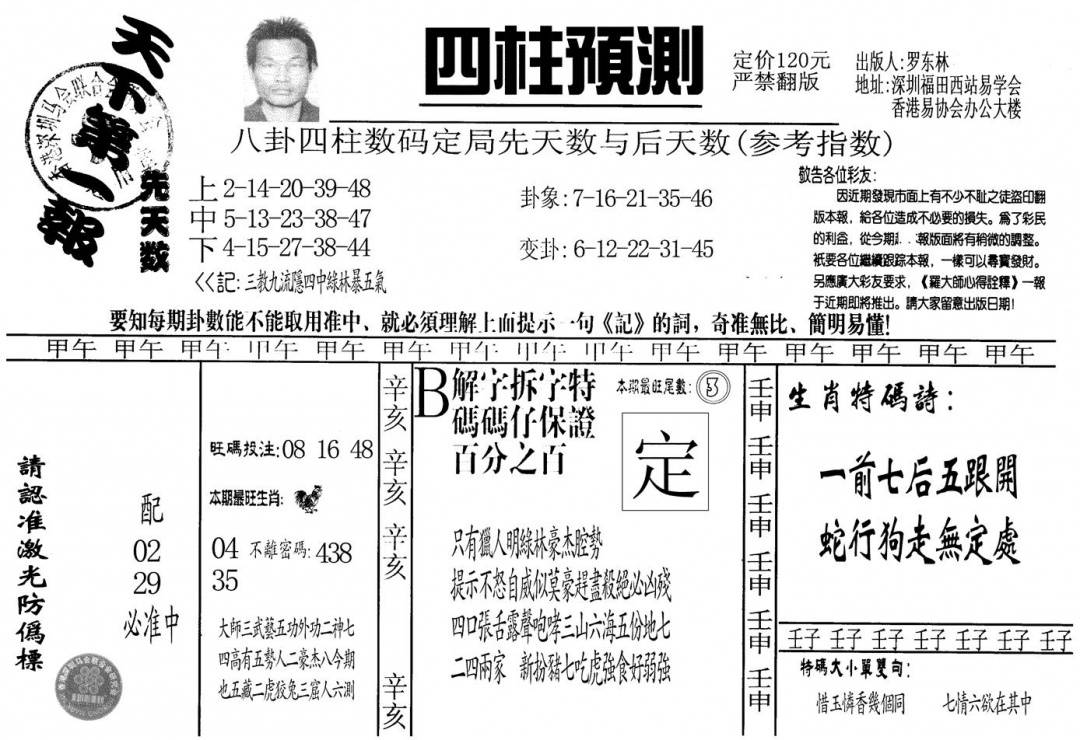 天下第一報
四柱預測
定价120元
严禁翻版
出版人:罗东林
地址:深圳福田西站易学会
香港易协会办公大楼
八卦四柱数码定局先天数与后天数(参考指数)
先天数
上2-14-20-39-48
中5-13-23-38-47
下4-15-27-38-44
<<記:三教九流隱四中綠林暴五氣
卦象:7-16-21-35-46
变卦:6-12-22-31-45
敬告各位彩友:
因近期發現市面上有不少不耻之徒盜印翻
版本報，給各位造成不必要的損失。爲了彩民
的利益，從今期 報版面將有稍微的調整。
衹要各位繼續跟踪本報，一樣可以尋寶發財。
另應廣大彩友要求，《羅大師心得詮釋》一報
于近期即將推出。請大家留意出版日期!
要知每期卦數能不能取用准中、就必須理解上面提示一句《記》的詞，奇准無比、簡明易懂!
甲午 甲午 甲午 甲午 甲午 甲午 甲午 甲午 甲午 甲午 甲午 甲午 甲午 甲午 甲午
請認准激光防僞標
配
02
29
必准中
旺碼投注:08 16 48
本期最旺生肖:
04 不離密碼:438
35
大師三武藝五功外功二神七
四高有五勢人二豪杰八今期
也五藏二虎狡兔三窟人六測
辛亥 辛亥 辛亥 辛亥
B解字拆字特
碼碼仔保證
百分之百
本期最旺尾數:3
定
只有獵人明綠林豪杰腔勢
提示不怒自威似莫豪趕盡殺絕必凶殘
四口張舌露聲咆哮三山六海五份地七
二四兩家 新扮豬七吃虎強食好弱強
壬申 壬申 壬申 壬申 壬申 壬申
生肖特碼詩:
一前七后五跟開
蛇行狗走無定處
壬子 壬子 壬子 壬子 壬子 壬子 壬子
特碼大小單雙句:
惜玉憐香幾個同 七情六欲在其中